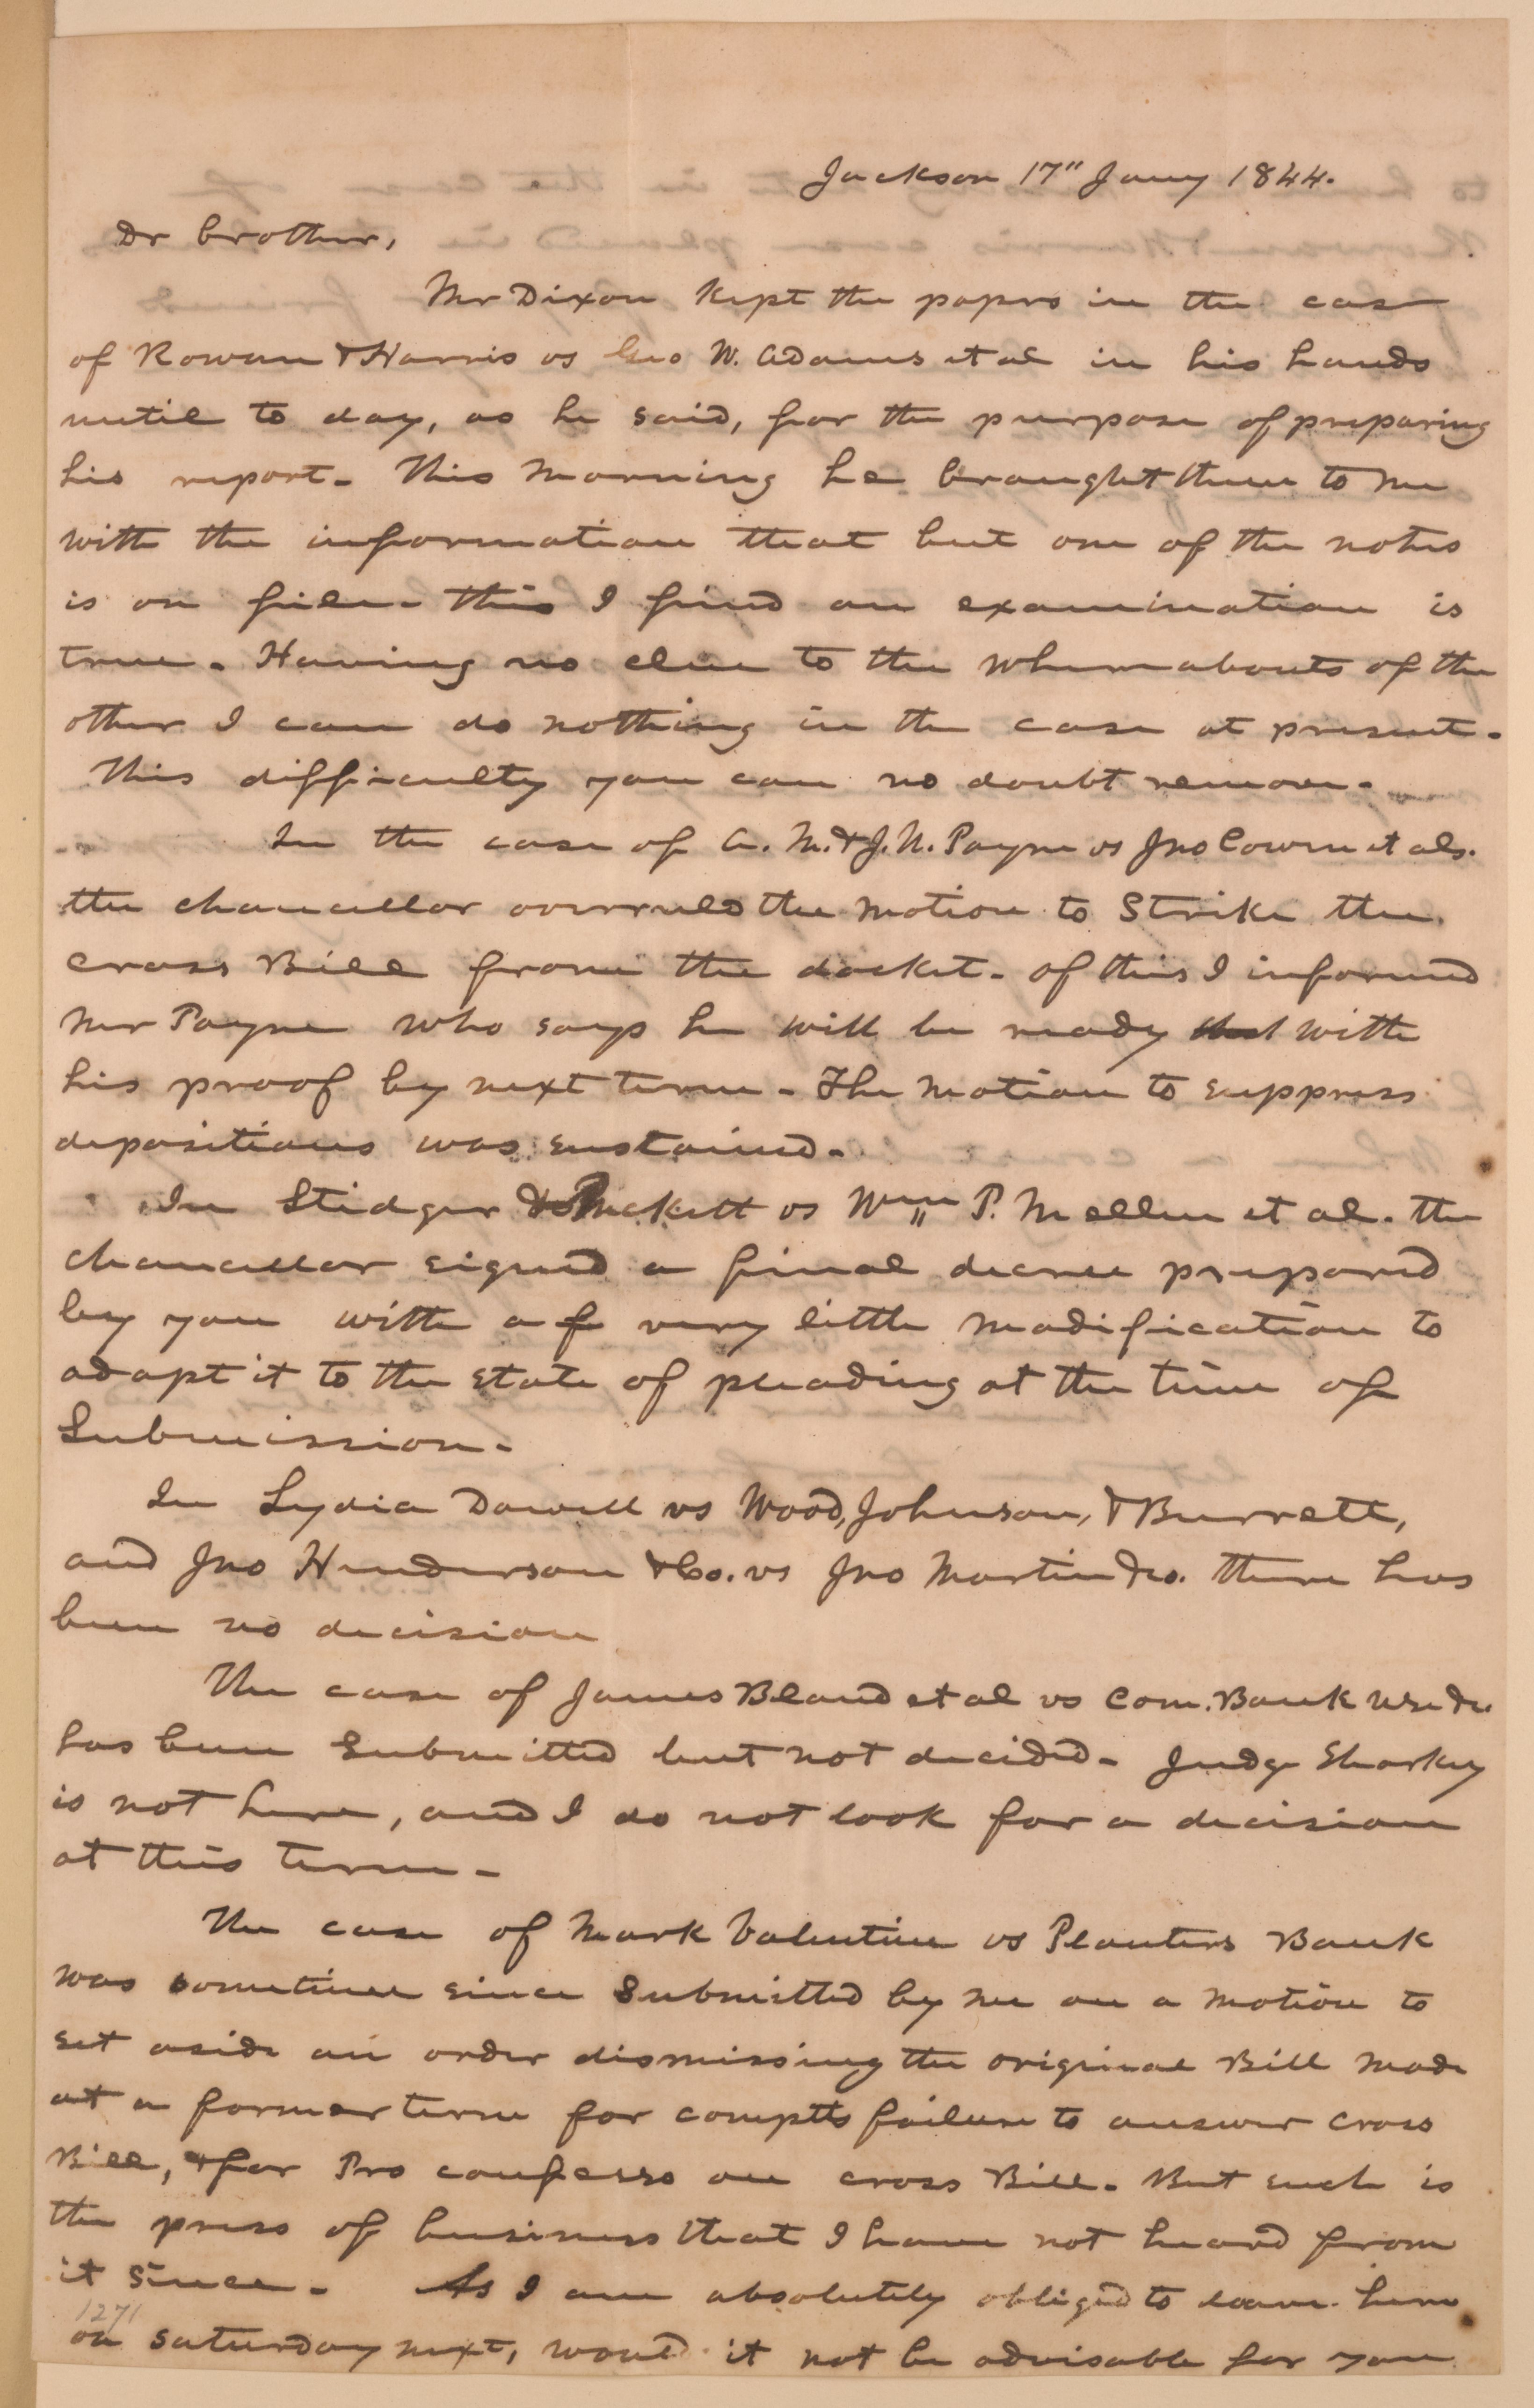 Jackson 17" Jany 1844.
Dr brother,
Mr Dixon kept the papers in the case
of Rowan & Harris vs Geo W. Adams et al in his hands
until to day, as he said, for the purpose of preparing
his report. This morning he brought them to me
with the information that but one of the notes
is on file. this I find on examination is
true. Having no clue to the whereabouts of the
other I can do nothing in the case at present.
This difficulty you can no doubt remove.
In the case of A. M. & J. N. Payne vs Jno Cowen et als.
the chancellor overruled the motion to strike the
cross Bill from the docket. of this I informed
Mr Payne who says he will be ready with
his proof by next term. The motion to suppress
depositions was sustained.
In Stidger & Puckett vs Wm P. Mellen et al. the
chancellor signed a final decree prepared
by you with a very little modification to
adapt it to the state of pleading at the time of
Submission.
In Lydia Dowell vs Wood, Johnson, & Burrett,
and Jno Henderson & Co. vs Jno Martin &c. there has
been no decision
The case of James Bland et al vs Com. Bank use &c.
has been submitted but not decided. Judge Sharkey
is not here, and I do not look for a decision
at this term.
The case of Mark Valentine vs Planters Bank
was sometime since submitted by me on a motion to
set aside an order dismissing the original Bill made
at a former term for complts failure to answer cross
Bill, & for Pro confesso on cross Bill. But such is
the press of business that I have not heard from
it since. As I am absolutely obliged to leave here
1271
on saturday next, would it not be advisable for you